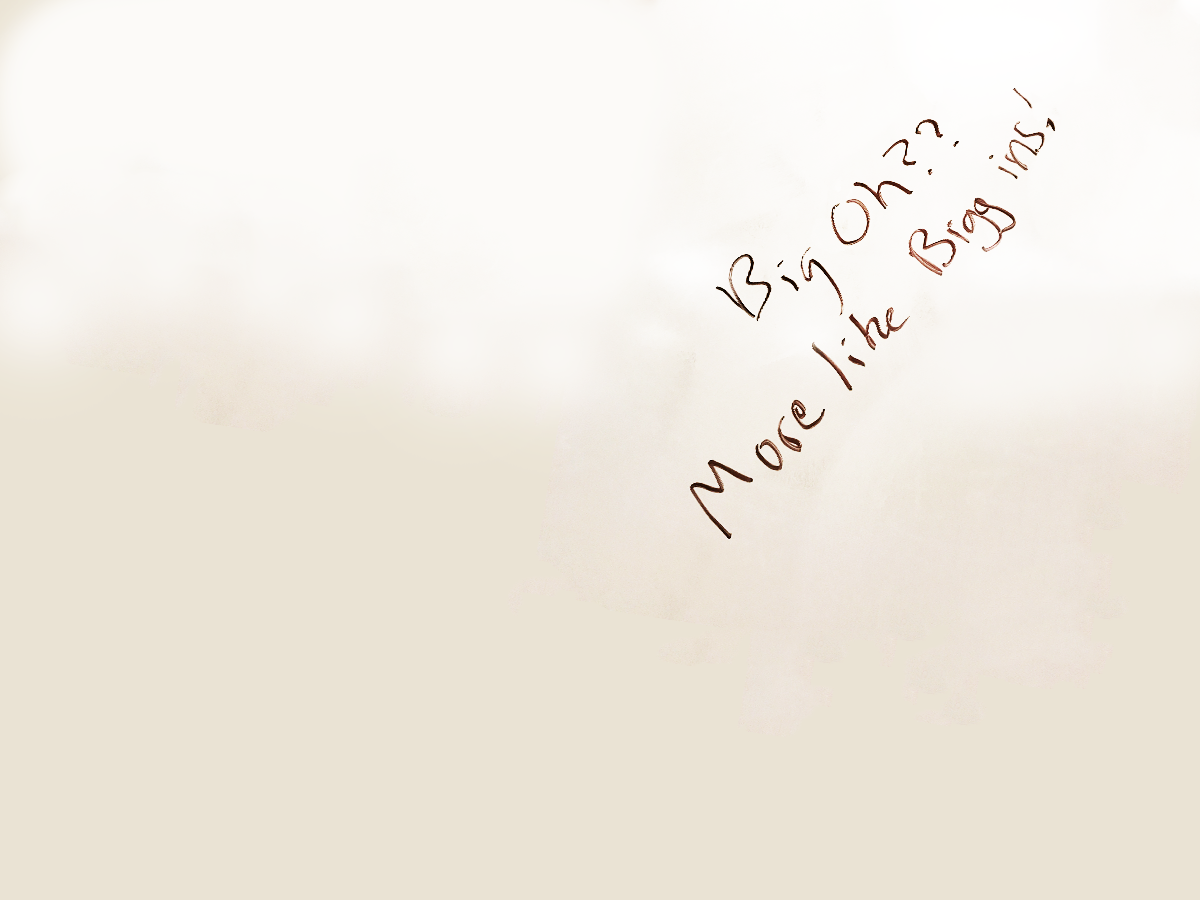 Big Oh??
More like Biggins!